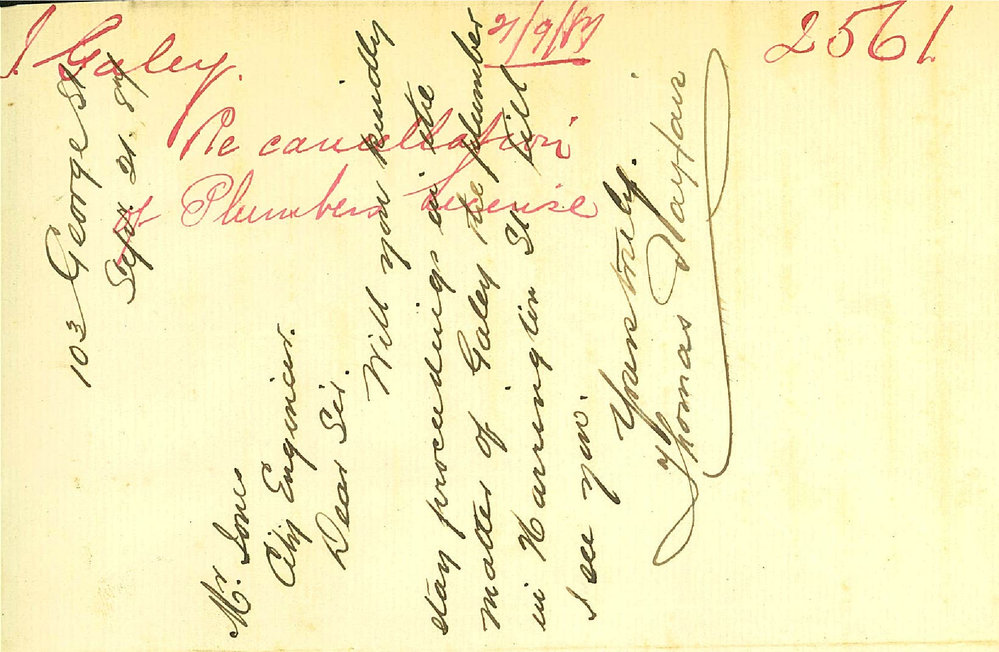 J. Galey.
21/9/87
2561
Re cancellation
of Plumbers License
103 George St
Sept. 21. 87
Mr. Jones
City Engineer.
Dear Sir.
Will you kindly
stay proceedings in the
matter of Galey the plumber
in Harrington St till
I see you.
Yours truly.
Thomas Playfair